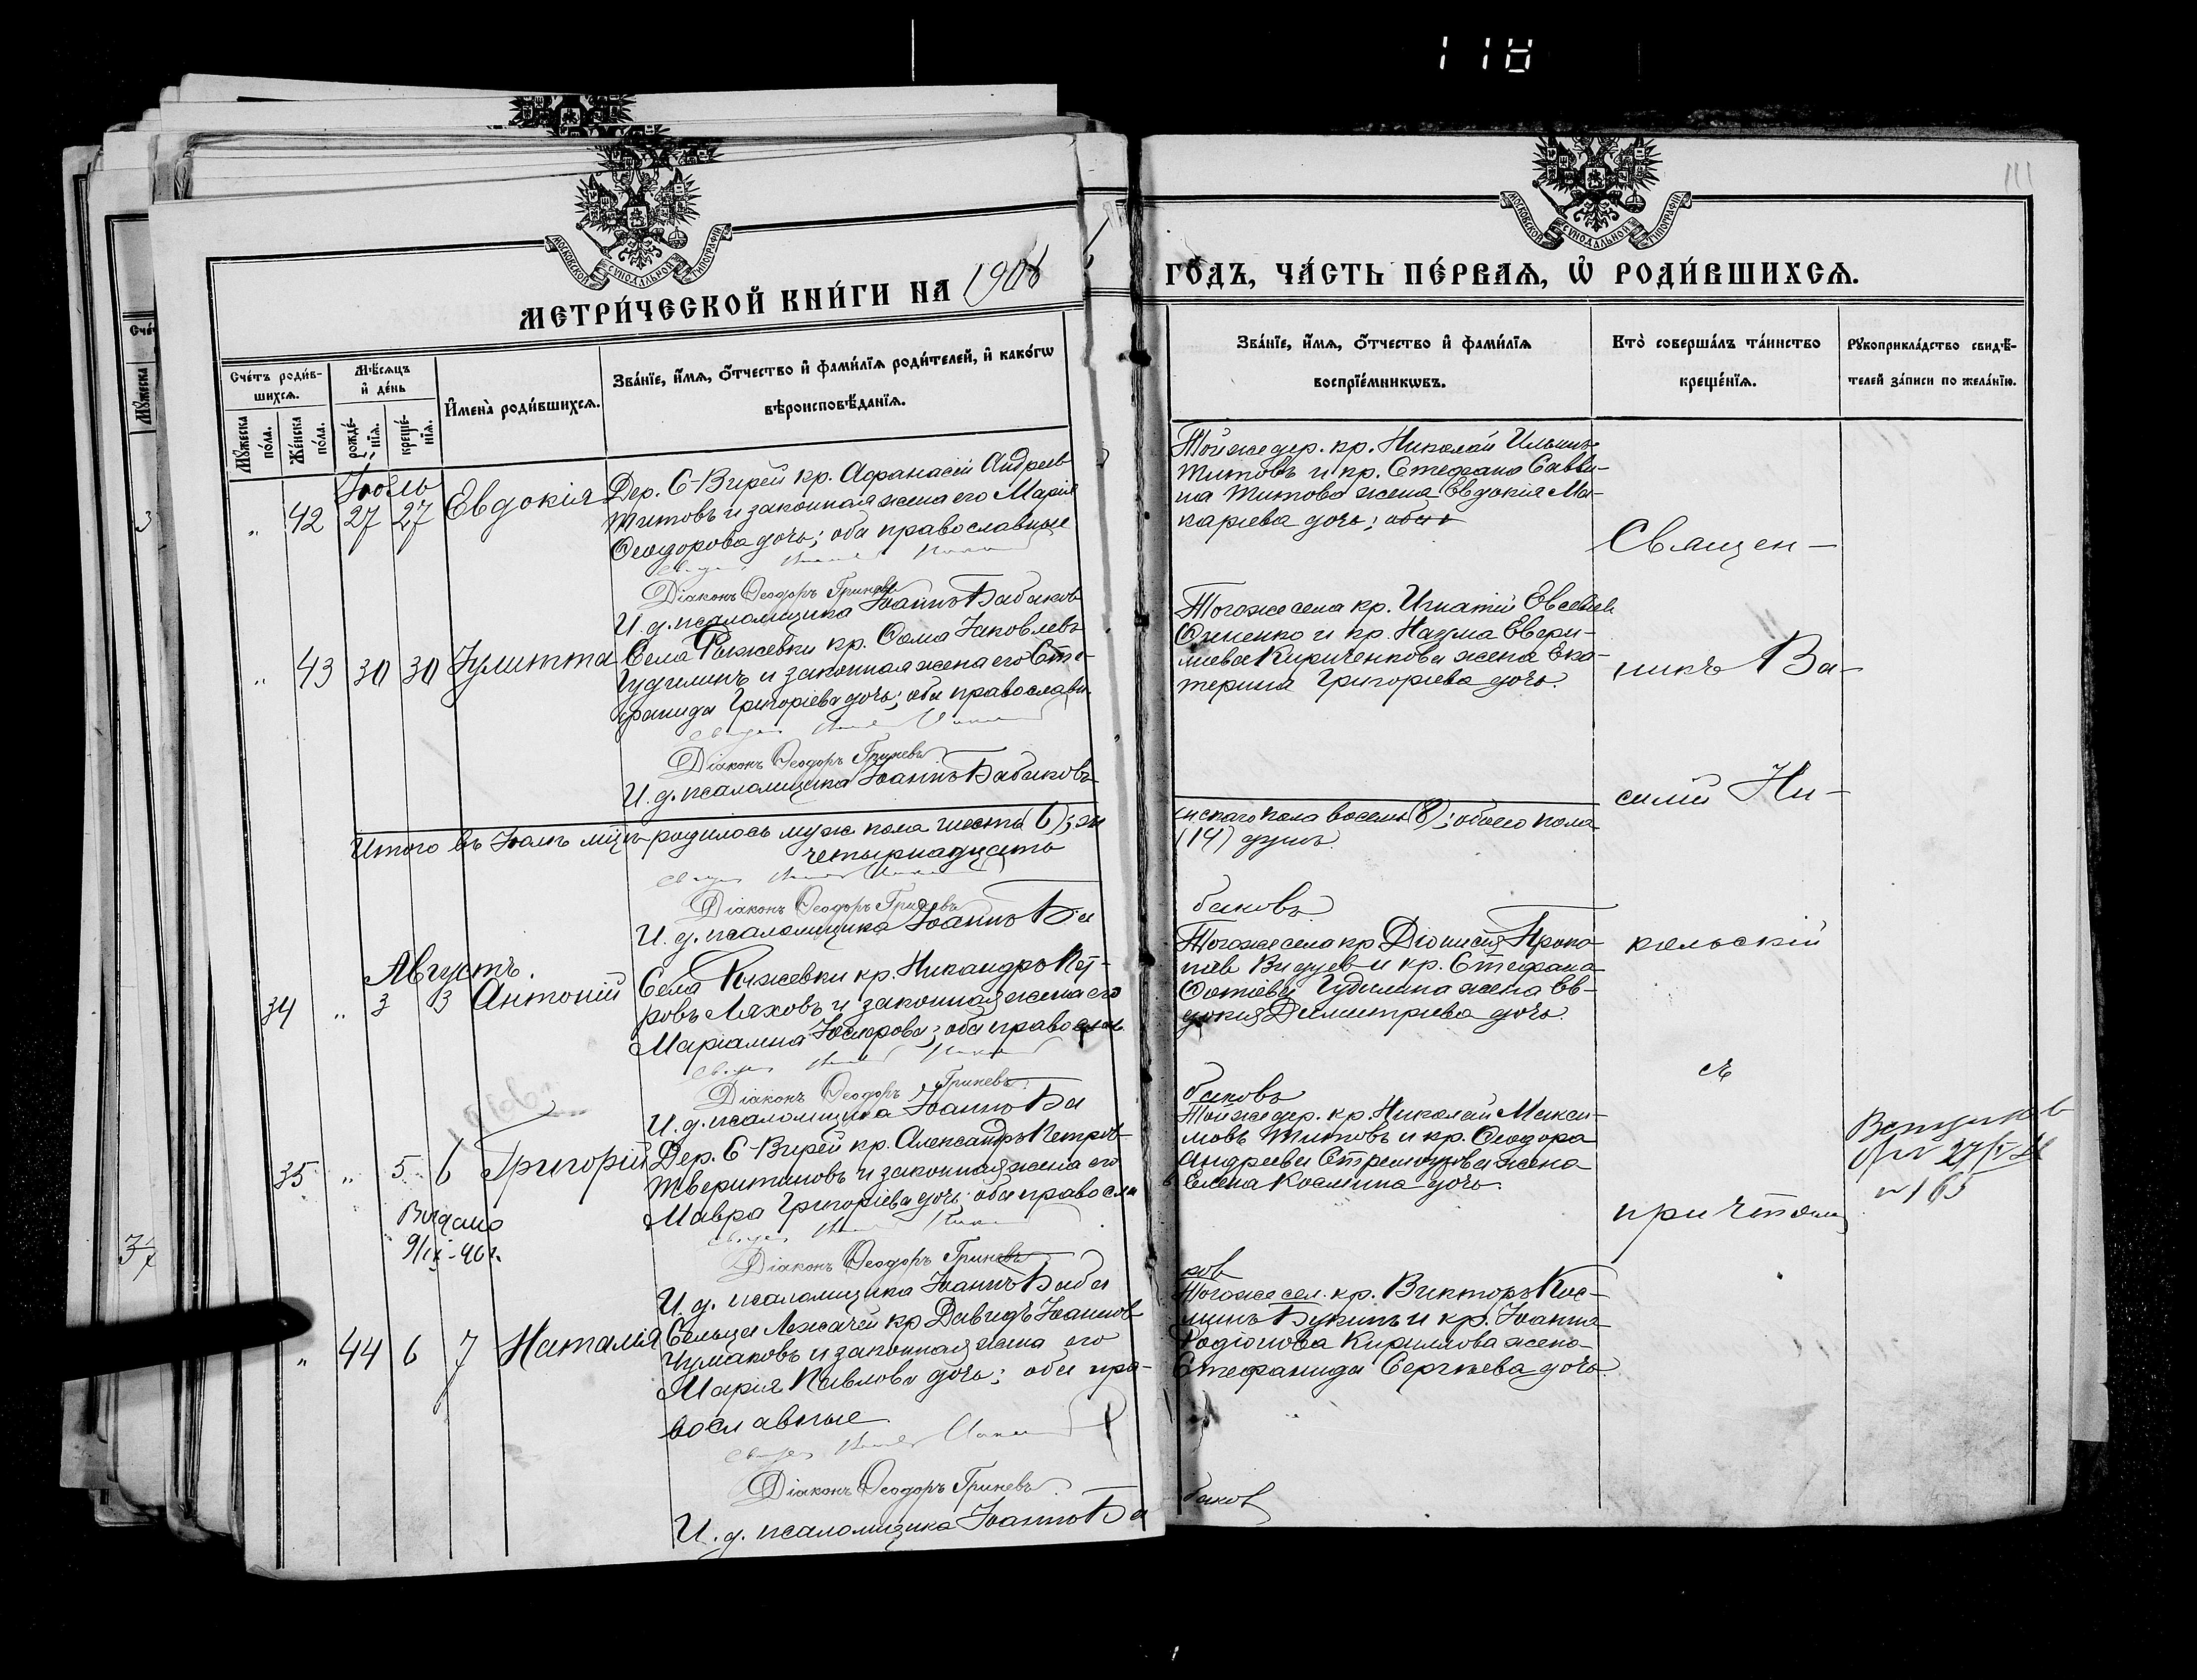 118
111
МОСКОВСКОЙ СѴНОДАЛЬНОЙ ТИПОГРАФІИ
МОСКОВСКОЙ СѴНОДАЛЬНОЙ ТИПОГРАФІИ
МЕТРИ́ЧЕСКОЙ КНИ́ГИ НА 1908
ГО́ДЪ, ЧА́СТЬ ПЕ́РВАѦ, Ѡ҆ РОДИ́ВШИХСѦ.
Сче́тъ роди́в-
шихсѧ.
Мꙋ́жеска по́ла.
Же́нска по́ла.
Мѣ́сѧцъ и҆ де́нь
рожде́-нїѧ.
креще́-нїѧ.
И҆мена̀ роди́вшихсѧ.
Зва́нїе, и҆́мѧ, ѻ҆́тчество и҆ фами́лїѧ роди́телей, и҆ како́гѡ
вѣроисповѣ́данїѧ.
Зва́нїе, и҆́мѧ, ѻ҆́тчество и҆ фами́лїѧ
воспрїе́мникѡвъ.
Кто̀ соверша́лъ та́инство
креще́нїѧ.
Рꙋкоприкла́дство свидѣ́-
телей за́писи по жела́нїю.
Іюль
" 42 27 27 Евдокія
Дер. С-Вирей кр. Аѳанасій Андреев
Титовъ и законная жена его Марія
Ѳеодорова дочь; оба православные
Діаконъ Ѳеодоръ Гриневъ
И. д. псаломщика Іоаннъ Бабаков
Тойже дер. кр. Николай Ильинъ
Титовъ и кр. Стефана Савви-
на Титова жена Евдокія Ма-
каріева дочь; оба
" 43 30 30 Іулитта
Села Рыжевки кр. Ѳома Іаковлевъ
Гудилинъ и законная жена его Сте-
фанида Григоріева дочь; оба православн.
Діаконъ Ѳеодоръ Гриневъ
И. д. псаломщика Іоаннъ Бабаковъ
Тогоже села кр. Игнатій Евсевіев
и кр. Наума
Кириченкова жена Ека-
терина Григоріева дочь.
Итого въ Іюлѣ мцѣ родилось муж пола шесть (6); же
нскаго пола восемь (8); обоего пола
четырнадцать
(14) душъ.
Діаконъ Ѳеодоръ Гриневъ
И. д. псаломщика Іоаннъ Ба
баковъ
Августъ.
34 " 3 3 Антоній
Села Рыжевки кр. Никандръ Пет-
ровъ Ляховъ и законная жена его
Маріамна; оба православ
Діаконъ Ѳеодоръ Гриневъ
И. д. псаломщика Іоаннъ Ба
баковъ
Тогоже села кр Діонисій Проко-
піев и кр. Стефана
Фотіева Гудилина жена Ев-
докія Димитріева дочь.
35 " 5 6 Григорій
Дер. С-Вирей кр. Александръ Петров
Тверитиновъ и законная жена его
Мавра Григоріева дочь; оба правосла
Діаконъ Ѳеодоръ Гриневъ
И. д. псаломщика Іоаннъ Баба
ков
Тойже дер. кр. Николай Макси-
мовъ Титовъ и кр. Ѳеодора
Андреева жена
Елена Космина дочь.
Выдано
9/IX-46г.
№ 165
" 44 6 7 Наталія
Сельца Лежачей кр Давидъ Іоаннов
Чумаковъ и законная жена его
Марія Павлова дочь; оба пра-
вославные
Діаконъ Ѳеодоръ Гриневъ
И. д. псаломщика Іоаннъ Ба
баков
Тогоже сел. кр. Викторъ Кос-
минъ Букинъ и кр. Іоанна
Родіонова Кирилова жена
Стефанида Сергѣева дочь.
Священ-
никъ Ва-
силій Ни-
кольскій
съ
причтомъ